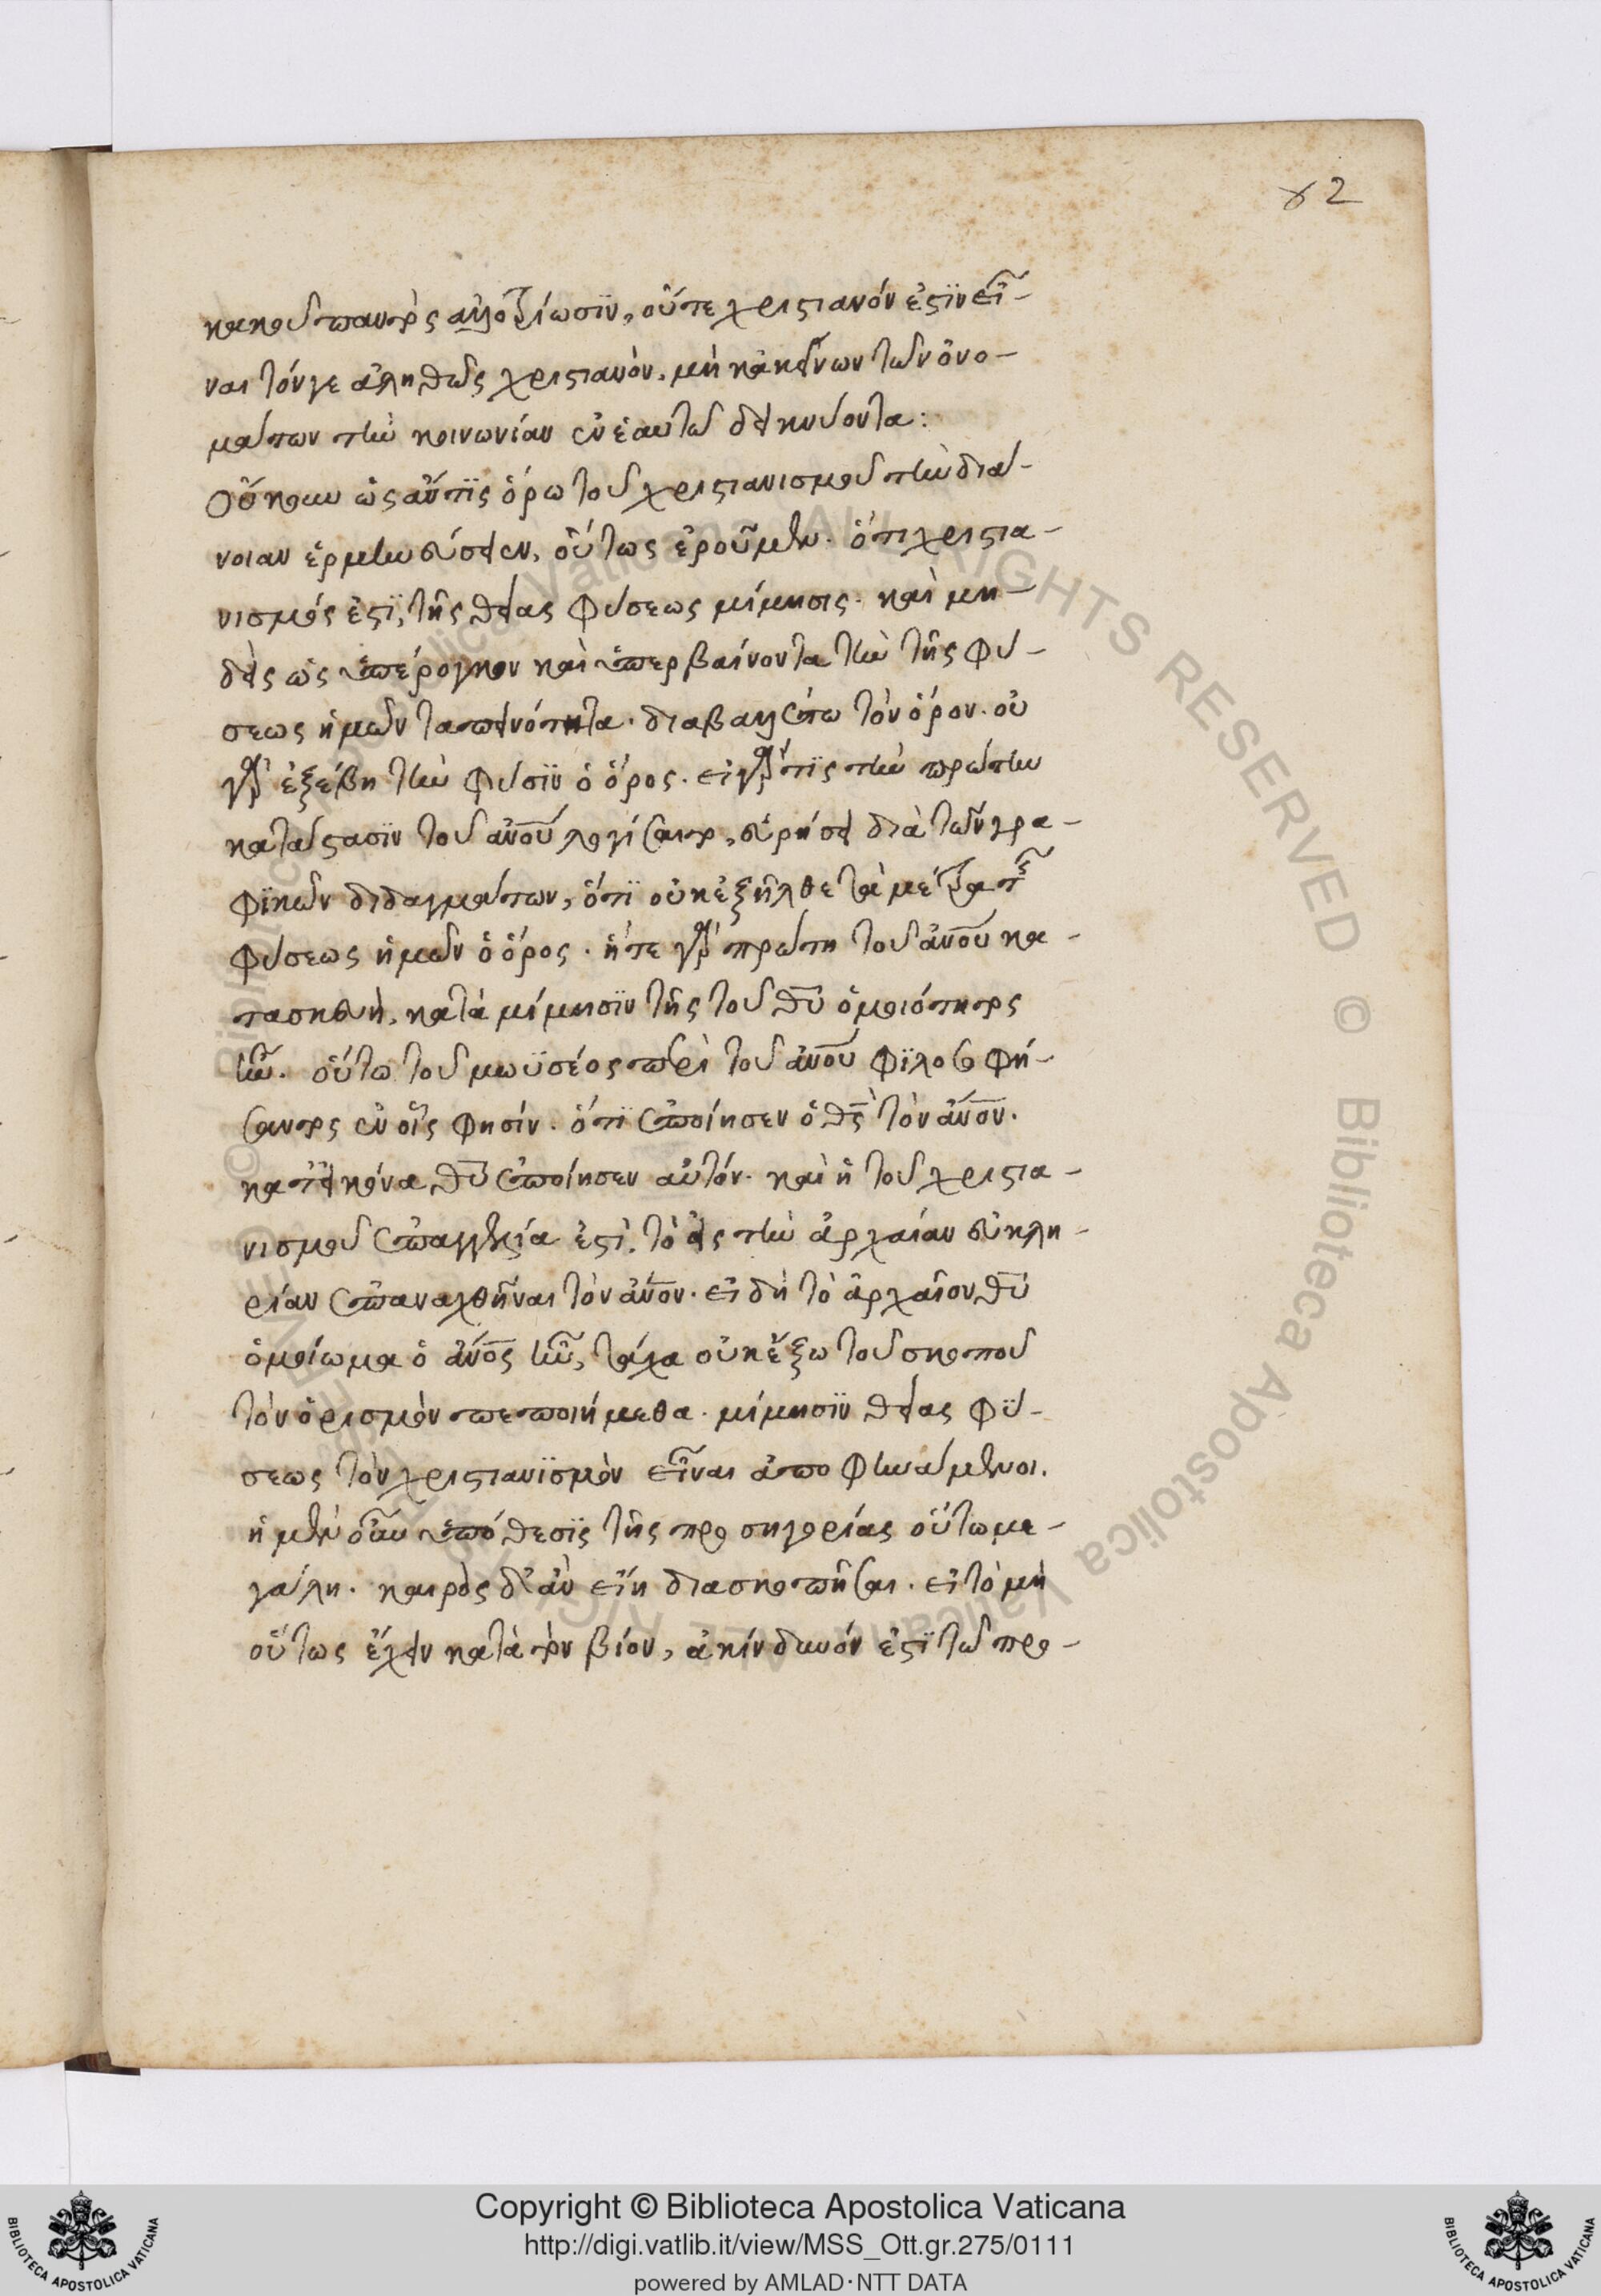 82
κακοῦ παντὸς ἀλλοτρίωσιν, οὔτε χριστιανόν ἐστιν εἶ-
ναι τόν γε ἀληθῶς χριστιανὸν, μὴ κἀκείνων τῶν ὀνο-
μάτων τὴν κοινωνίαν ἐν ἑαυτῶ δεικνύοντα:
Οὐκοῦν ὡς ἄν τις ὅρω τοῦ χριστιανισμοῦ τὴν διά-
νοιαν ἑρμηνεύσειεν, οὕτως ἐροῦμεν. ὅτι χριστια-
νισμός ἐστϊ, τῆς θείας φύσεως μίμησις. καὶ μη-
δεὶς ὡς ὑπέρογκον καὶ ὑπερβαίνοντα τὴν τῆς φύ-
σεως ἡμῶν ταπεινότητα. διαβαλλέτω τὸν ὅρον. οὐ
γὰρ ἐξέβη τὴν φύσϊν ὁ ὅρος. εἰ γάρ τϊς τὴν πρώτην
κατάστασϊν τοῦ ἀνου λογίσαιτο, εὑρήσει διὰ τῶν γρα-
φϊκῶν διδαγμάτων, ὅτϊ οὐκ ἐξῆλθε τὰ μέτρα τῆς
φύσεως ἡμῶν ὁ ὅρος. ἥτε γὰρ πρώτη τοῦ ἀνου κα-
τασκευὴ, κατὰ μίμησϊν τῆς τοῦ θυ ὁμοιότητος
ἦν. οὕτω τοῦ μωϋσέος περὶ τοῦ ἀνου φϊλοσοφή-
σαντος ἐν οἷς φησίν. ὅτϊ ἐποίησεν ὁ θς τὸν ἄνον.
κατ' εἰκόνα θυ ἐποίησεν αὐτόν. καὶ ἡ τοῦ χριστια-
νισμοῦ ἐπαγγελία ἐστὶ, τὸ εἰς τὴν ἀρχαίαν εὐκλη-
ρίαν ἐπαναχθῆναι τὸν ἄνον. εἰ δὴ τὸ ἀρχαῖον θυ
ὁμοίωμα ὁ ἄνος ἦν, τάχα οὐκ ἔξω τοῦ σκοποῦ
τὸν ὁρισμὸν πεποιήμεθα. μίμησϊν θείας φύ-
σεως τὸν χριστιανϊσμὸν εἶναι ἀποφηνάμενοι.
ἡ μὲν οὖν ὑπόθεσϊς τῆς προσηγορίας οὕτω με-
γάλη. καιρὸς δ' ἂν εἴη διασκοπῆσαι. εἰ τὸ μὴ
οὕτως ἔχειν κατὰ τὸν βίον, ἀκίνδυνόν ἐστϊ τῶ προ-
Copyright © Biblioteca Apostolica Vaticana
http://digi.vatlib.it/view/MSS_Ott.gr.275/0111
powered by AMLAD·NTT DATA